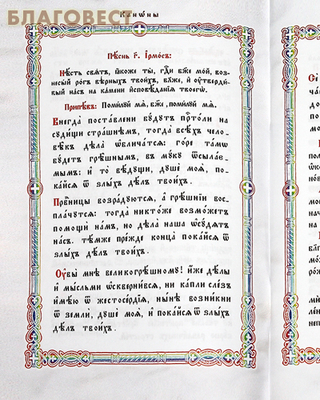 БЛАГОВЕСТ
Канѡ́ны
Пѣ́снь г҃. І҆рмо́съ:
Нѣ́сть свѧ́тъ, ꙗ҆́коже ты̀, гдⷭ҇и бж҃е мо́й, воз-
несы́й ро́гъ вѣ́рныхъ твои́хъ, бл҃же, и҆ ᲂу҆тверди́-
вый на́съ на ка́мени и҆сповѣ́данїѧ твоегѡ̀.
Припѣ́въ: Поми́лꙋй мѧ̀, бж҃е, поми́лꙋй мѧ̀.
Внегда̀ поста́влени бꙋ́дꙋтъ прⷭ҇то́ли на
сꙋди́щи стра́шнѣмъ, тогда̀ всѣ́хъ чело-
вѣ́къ дѣла̀ ѡ҆блича́тсѧ: го́ре та́мѡ
бꙋ́детъ грѣ́шнымъ, въ мꙋ́кꙋ ѿсыла̑-
мымъ: и҆ то̀ вѣ́дꙋщи, дꙋшѐ моѧ̀, по-
ка́йсѧ ѿ ѕлы́хъ дѣ́лъ твои́хъ.
Првⷣницы возра́дꙋютсѧ, а҆ грѣ́шнїи вос-
пла́чꙋтсѧ: тогда̀ никто́же возмо́жетъ
помощѝ на́мъ, но дѣла̀ на́ша ѡ҆сꙋ́дѧтъ
на́съ. Тѣ́мже пре́жде конца̀ пока́йсѧ ѿ
ѕлы́хъ дѣ́лъ твои́хъ.
Оу҆вы̀ мнѣ̀ великогрѣ́шномꙋ! и҆́же дѣ́лы
и҆ мы́сльми ѡ҆скверни́всѧ, ни ка́пли сле́зъ
и҆мѣ́ю ѿ жестосе́рдїѧ, ны́нѣ возни́кни
ѿ землѝ, дꙋшѐ моѧ̀, и҆ пока́йсѧ ѿ ѕлы́хъ
дѣ́лъ твои́хъ.